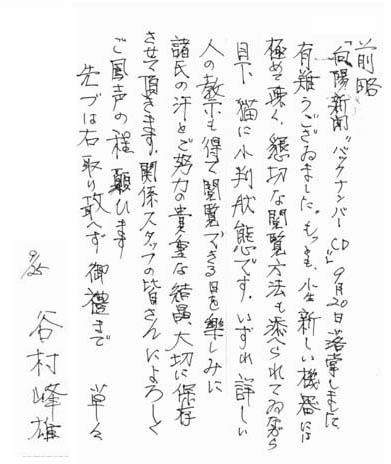 前略
「向陽新聞」バックナンバーCD 9月20日落掌しました
有難うございました。もっとも、小生新しい機器には
極めて疎く、懇切な閲覧方法も添へられてゐながら
目下 猫に小判状態です。いずれ詳しい
人の教示も得て閲覧できる日を楽しみに
諸氏の汗とご努力の貴重な結晶、大切に保存
させて頂きます。関係スタッフの皆さんによろしく
ご鳳声の程願ひます
先づは右取り敢へず御禮まで 草々
9/25 谷村峰雄